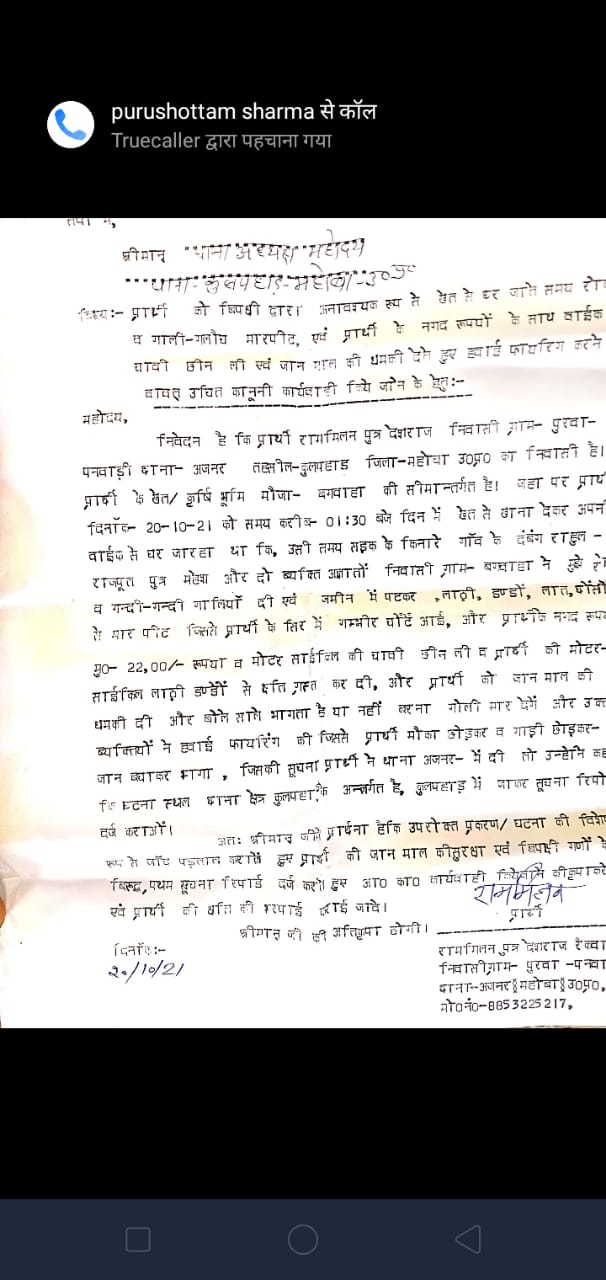 purushottam sharma से कॉल
Truecaller द्वारा पहचाना गया
श्रीमान् थाना अध्यक्ष महोदय
थाना-कुलपहाड़-महोबा-उ०प्र०
विषय:- प्रार्थी को विपक्षी द्वारा अनावश्यक रूप से खेत से घर जाते समय
व गाली-गलौच मारपीट, एवं प्रार्थी के नगद रूपयों के साथ वाईक
चावी छीन ली एवं जान माल की धमकी देते हुए हवाई फायरिंग करने
वावत् उचित कानूनी कार्यवाही किये जाने के हेतु:-
महोदय,
निवेदन है कि प्रार्थी राममिलन पुत्र देशराज निवासी ग्राम- पुरवा-
पनवाड़ी थाना- अजनर तहसील-कुलपहाड़ जिला-महोवा उ0प्र0 का निवासी है।
प्रार्थी के खेत/ कृषि भूमि मौजा- बगवाहा की सीमान्तर्गत है। जहा पर
दिनाँक- 20-10-21 को समय करीब- 01:30 बजे दिन में खेत से खाना देकर
वाईक से घर जारहा था कि, उसी समय सड़क के किनारे गाँव के दंबंग राहुल -
राजपूत पुत्र और दो ब्यक्ति अज्ञातों निवासी ग्राम- बगवाहा ने मुझे
व गन्दी-गन्दी गालियाँ दी एवं जमीन में पटकर ,लाठी, डण्डों, लात,
से मार पीट जिससे प्रार्थी के सिर में गम्भीर चोटें आई, और प्रार्थीके नगद
मु0- 22,00/- रूपया व मोटर साईकिल की चावी छीन ली व प्रार्थी की मोटर-
साईकिल लाठी डण्डों से क्षति ग्रस्त कर दी, और प्रार्थी को जान माल की
धमकी दी और बोले साले भागता है या नहीं वरना गोली मार देगें और
ब्यक्तियों ने हवाई फायरिंग की जिससे प्रार्थी मौका छोड़कर व गाड़ी छोड़कर-
जान बचाकर भागा , जिसकी सूचना प्रार्थी ने थाना अजनर- में दी तो उन्होने
कि घटना स्थल थाना क्षेत्र कुलपहाड़ के अन्तर्गत है, कुलपहाड़ में जाकर सूचना
दर्ज कराओं।
अतः श्रीमान जीसे प्रार्थना हैकि उपरोक्त प्रकरण/ घटना की
रूप से जाँच पड़ताल कराते हुए प्रार्थी की जान माल कीसुरक्षा एवं विपक्षी गणों के
विरूद्ध,प्रथम सूचना रिपार्ड दर्ज करते हुए आ0 का0 कार्यवाही कीकृपाकरे
एवं प्रार्थी की क्षति की भरपाई कराई जावे।
श्रीमान जी की अतिकृपा होगी।
राममिलन
प्रार्थी
दिनाँक:-
20/10/21
राममिलन पुत्र देशराज
निवासीग्राम- पुरवा -पनवा
थाना-अजनर॥महोबा॥उ0प्र0,
मो0नं0-8853225217,